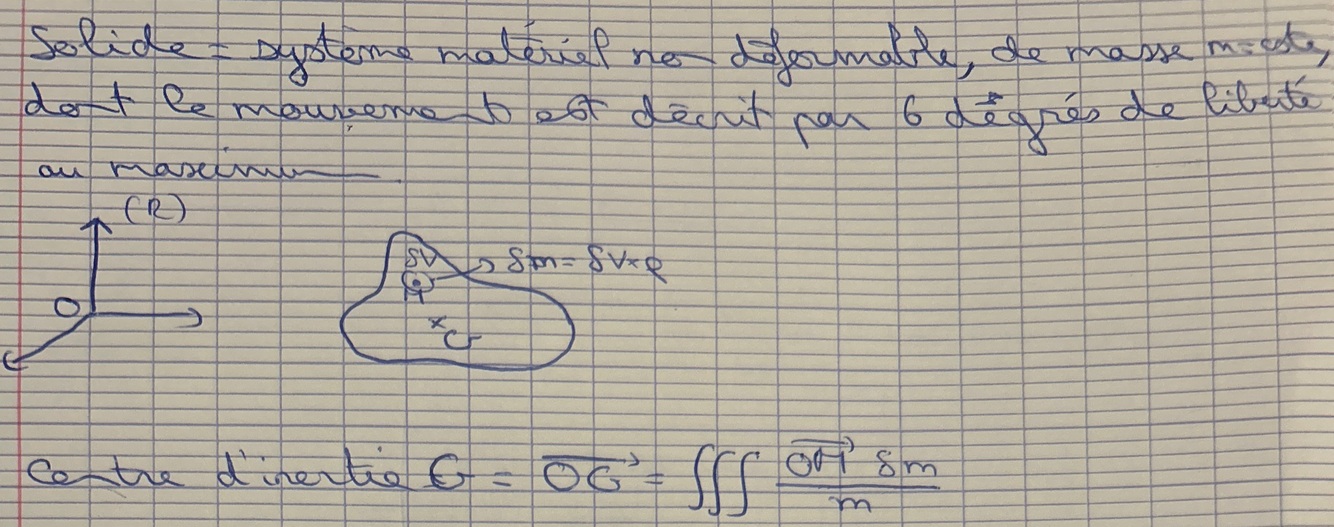 Solide = système matériel non déformable, de masse m=cste,
dont le mouvement est décrit par 6 dégrés de liberté
au maximum
(R)
δV
δm = δV×ρ
M
O
G
Centre d'inertie G = \overrightarrow{OG} = ∭ \frac{\overrightarrow{OM} δm}{m}